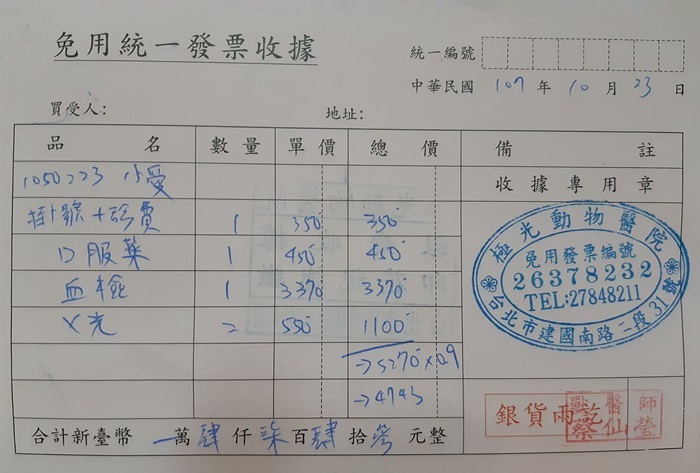 免用統一發票收據
統一編號
中華民國 107 年 10 月 23 日
買受人: 地址:
品名 數量 單價 總價 備註
1050223 小愛
收據專用章
掛號+診費 1 350 350
口服藥 1 450 450
血檢 1 3370 3370
X光 2 550 1100
→5270×0.9
→4743
極光動物醫院
免用發票編號
26378232
TEL:27848211
台北市建國南路二段31號
銀貨兩訖
獸醫師
蔡仙瑩
合計新臺幣 萬肆仟柒百肆拾參元整